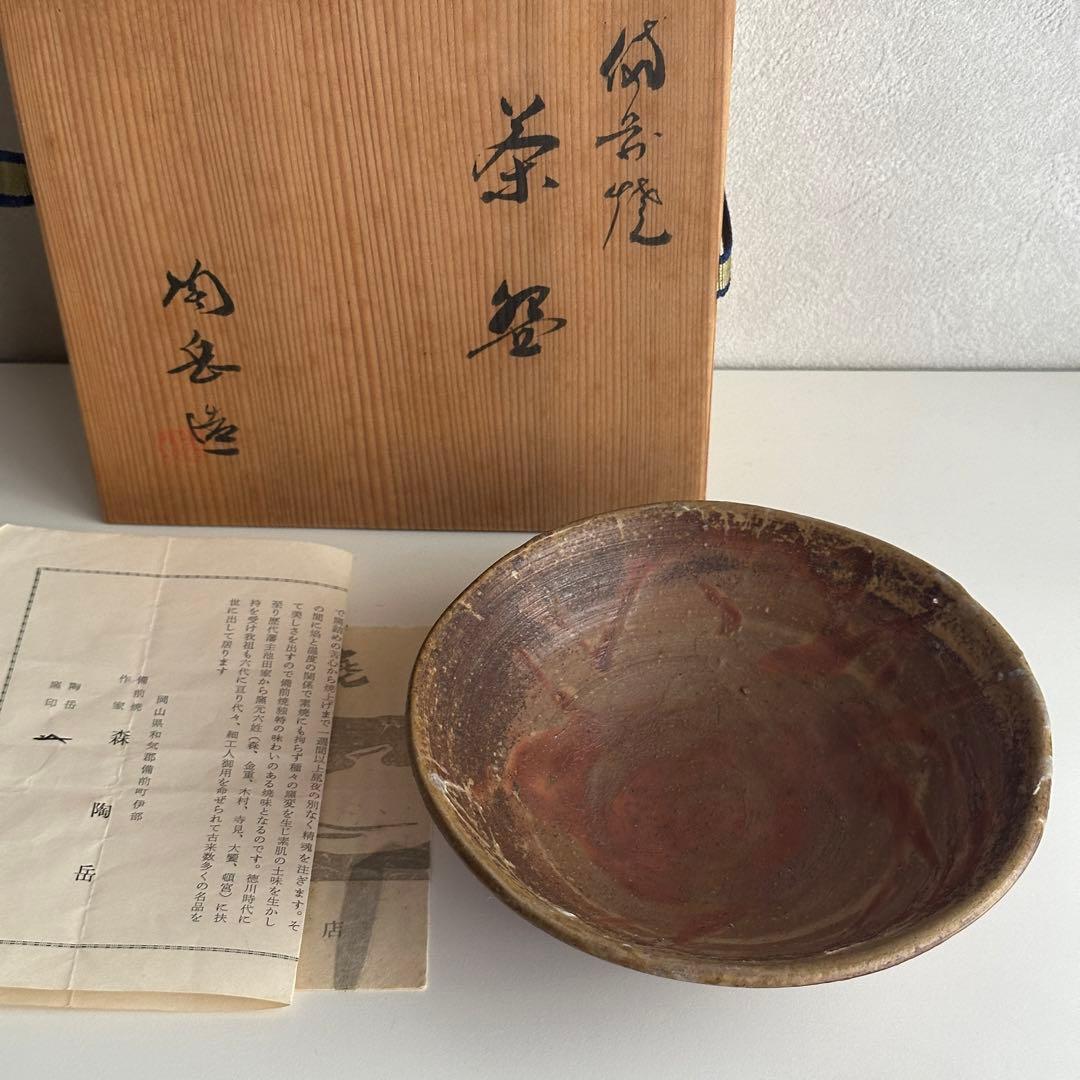 備前焼
茶盌
陶岳造
で陶詰めの苦心から焼上げまで一週間以上昼夜の別なく精魂を注ぎます。そ
の間に焔と温度の関係で素焼にも拘らず種々の窯変を生じ素肌の土味を生かし
て美しさを出すので備前焼独特の味わいのある焼味となるのです。徳川時代に
至り歴代藩主池田家から窯元六姓(森、金重、木村、寺見、大饗、頓宮)に扶
持を受け我祖も六代に亘り代々、細工人御用を命ぜられて古来数多くの名品を
世に出して居ります
岡山県和気郡備前町伊部
備前焼
作家
森陶岳
陶岳
窯印
店